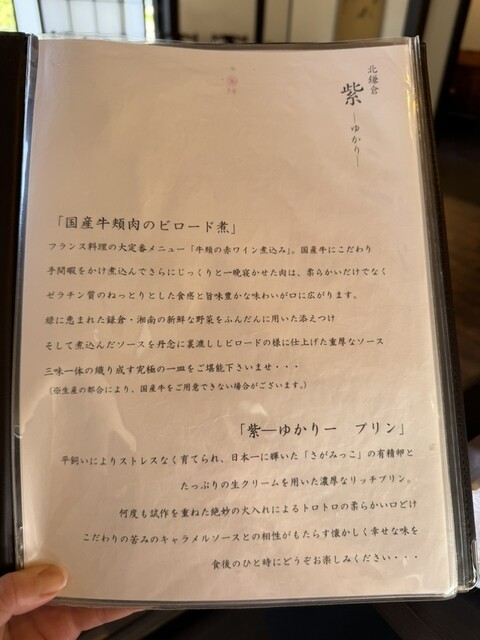 北鎌倉
紫
―ゆかり―
「国産牛頬肉のビロード煮」
フランス料理の大定番メニュー「牛頬の赤ワイン煮込み」。国産牛にこだわり
手間暇をかけ煮込んでさらにじっくりと一晩寝かせた肉は、柔らかいだけでなく
ゼラチン質のねっとりとした食感と旨味豊かな味わいが口に広がります。
緑に恵まれた鎌倉・湘南の新鮮な野菜をふんだんに用いた添えつけ
そして煮込んだソースを丹念に裏漉ししビロードの様に仕上げた重厚なソース
三味一体の織り成す究極の一皿をご堪能下さいませ・・・
(※生産の都合により、国産牛をご用意できない場合がございます。)
「紫―ゆかりー　プリン」
平飼いによりストレスなく育てられ、日本一に輝いた「さがみっこ」の有精卵と
たっぷりの生クリームを用いた濃厚なリッチプリン。
何度も試作を重ねた絶妙の火入れによるトロトロの柔らかい口どけ
こだわりの苦みのキャラメルソースとの相性がもたらす懐かしく幸せな味を
食後のひと時にどうぞお楽しみください・・・